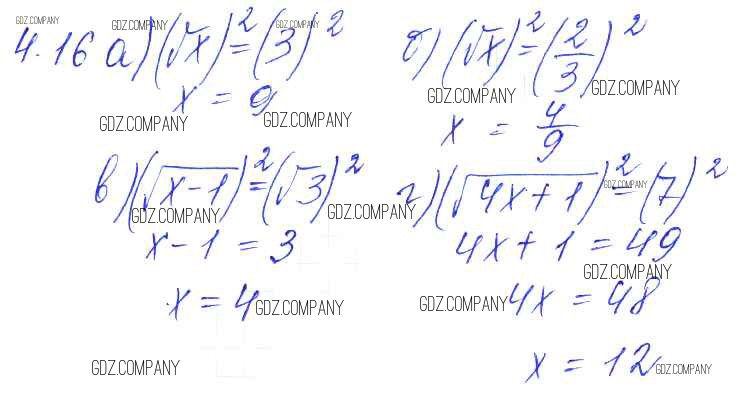 GDZ.COMPANY GDZ.COMPANY GDZ.COMPANY
4.16 а) (√x)² = (3)² б) (√x)² = (2/3)²
GDZ.COMPANY GDZ.COMPANY
x = 9 x = 4/9
GDZ.COMPANY GDZ.COMPANY
в) (√(x-1))² = (√3)² г) (√(4x+1))² = (7)²
GDZ.COMPANY GDZ.COMPANY GDZ.COMPANY
x-1 = 3 4x+1 = 49
GDZ.COMPANY
x = 4 GDZ.COMPANY GDZ.COMPANY 4x = 48
GDZ.COMPANY x = 12 GDZ.COMPANY